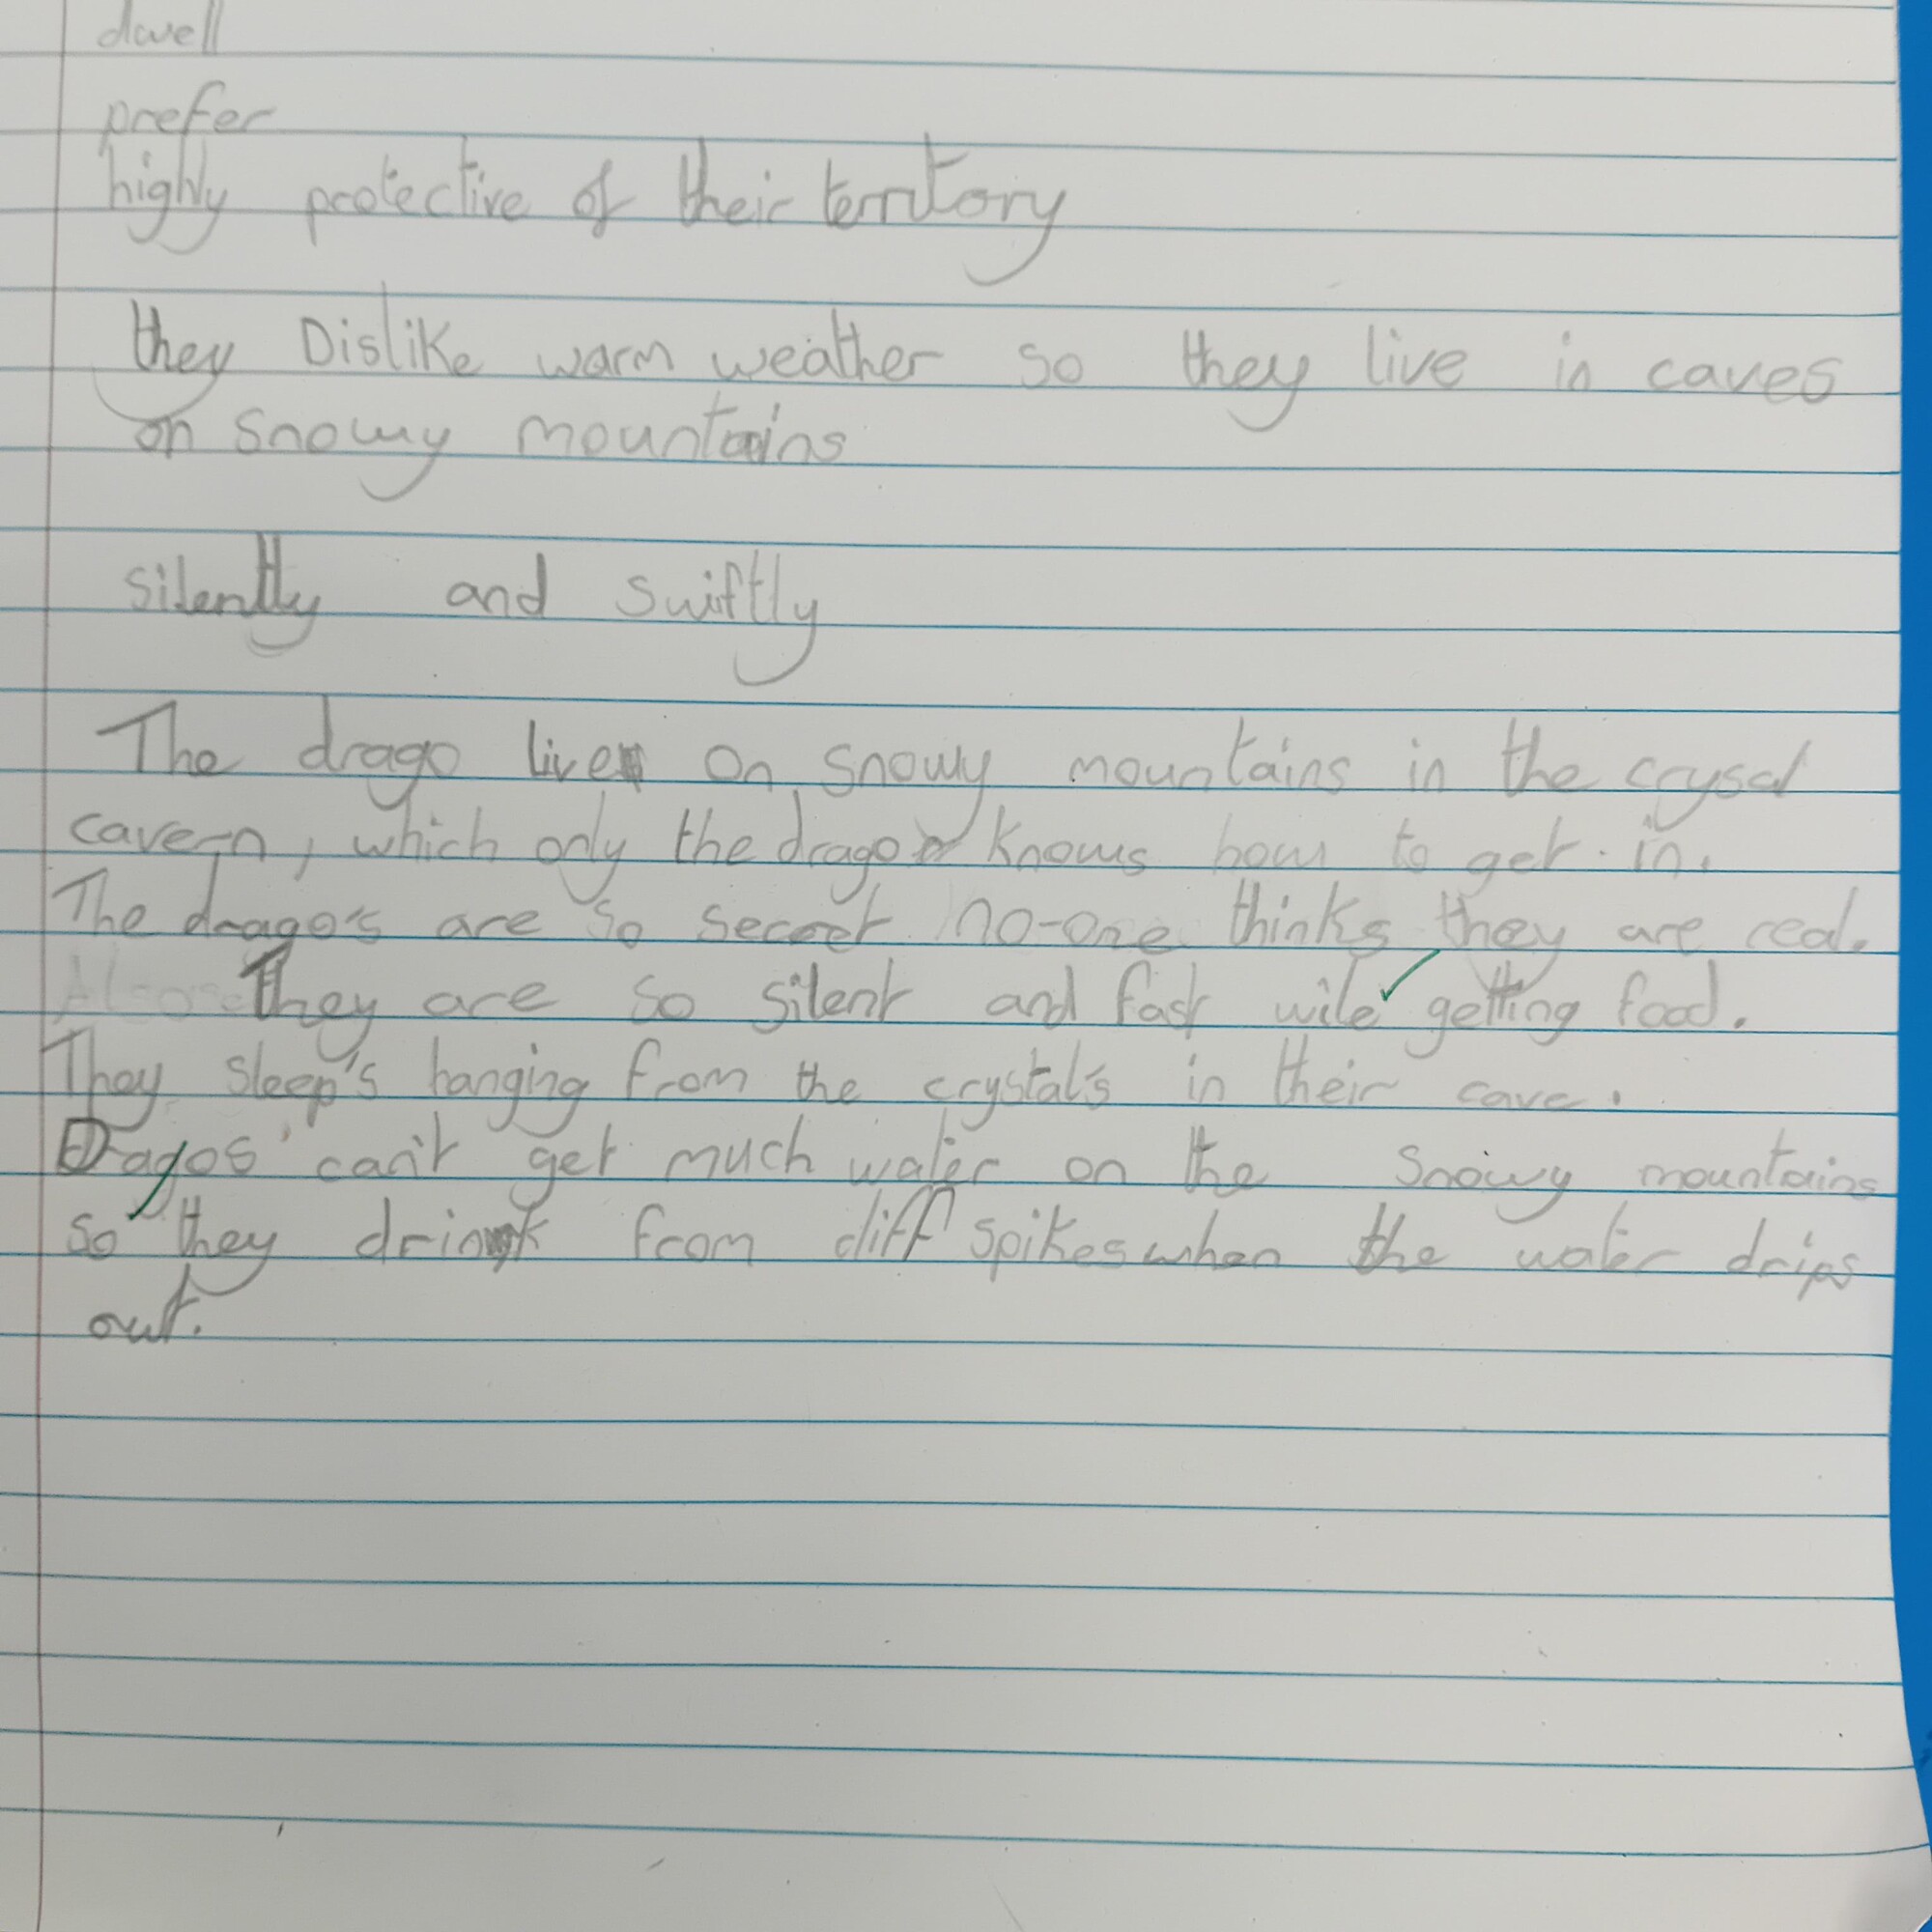 dwell
prefer
highly protective of their territory
they Dislike warm weather so they live in caves
on snowy mountains
silently and swiftly
The drago lives on snowy mountains in the crysal
cavern, which only the drago knows how to get in.
The drago's are so secret no-one thinks they are real.
They are so silent and fast wile getting food.
They sleep's hanging from the crystal's in their cave.
Dragos' can't get much water on the snowy mountains
so they drink from cliff spikes when the water drips
out.